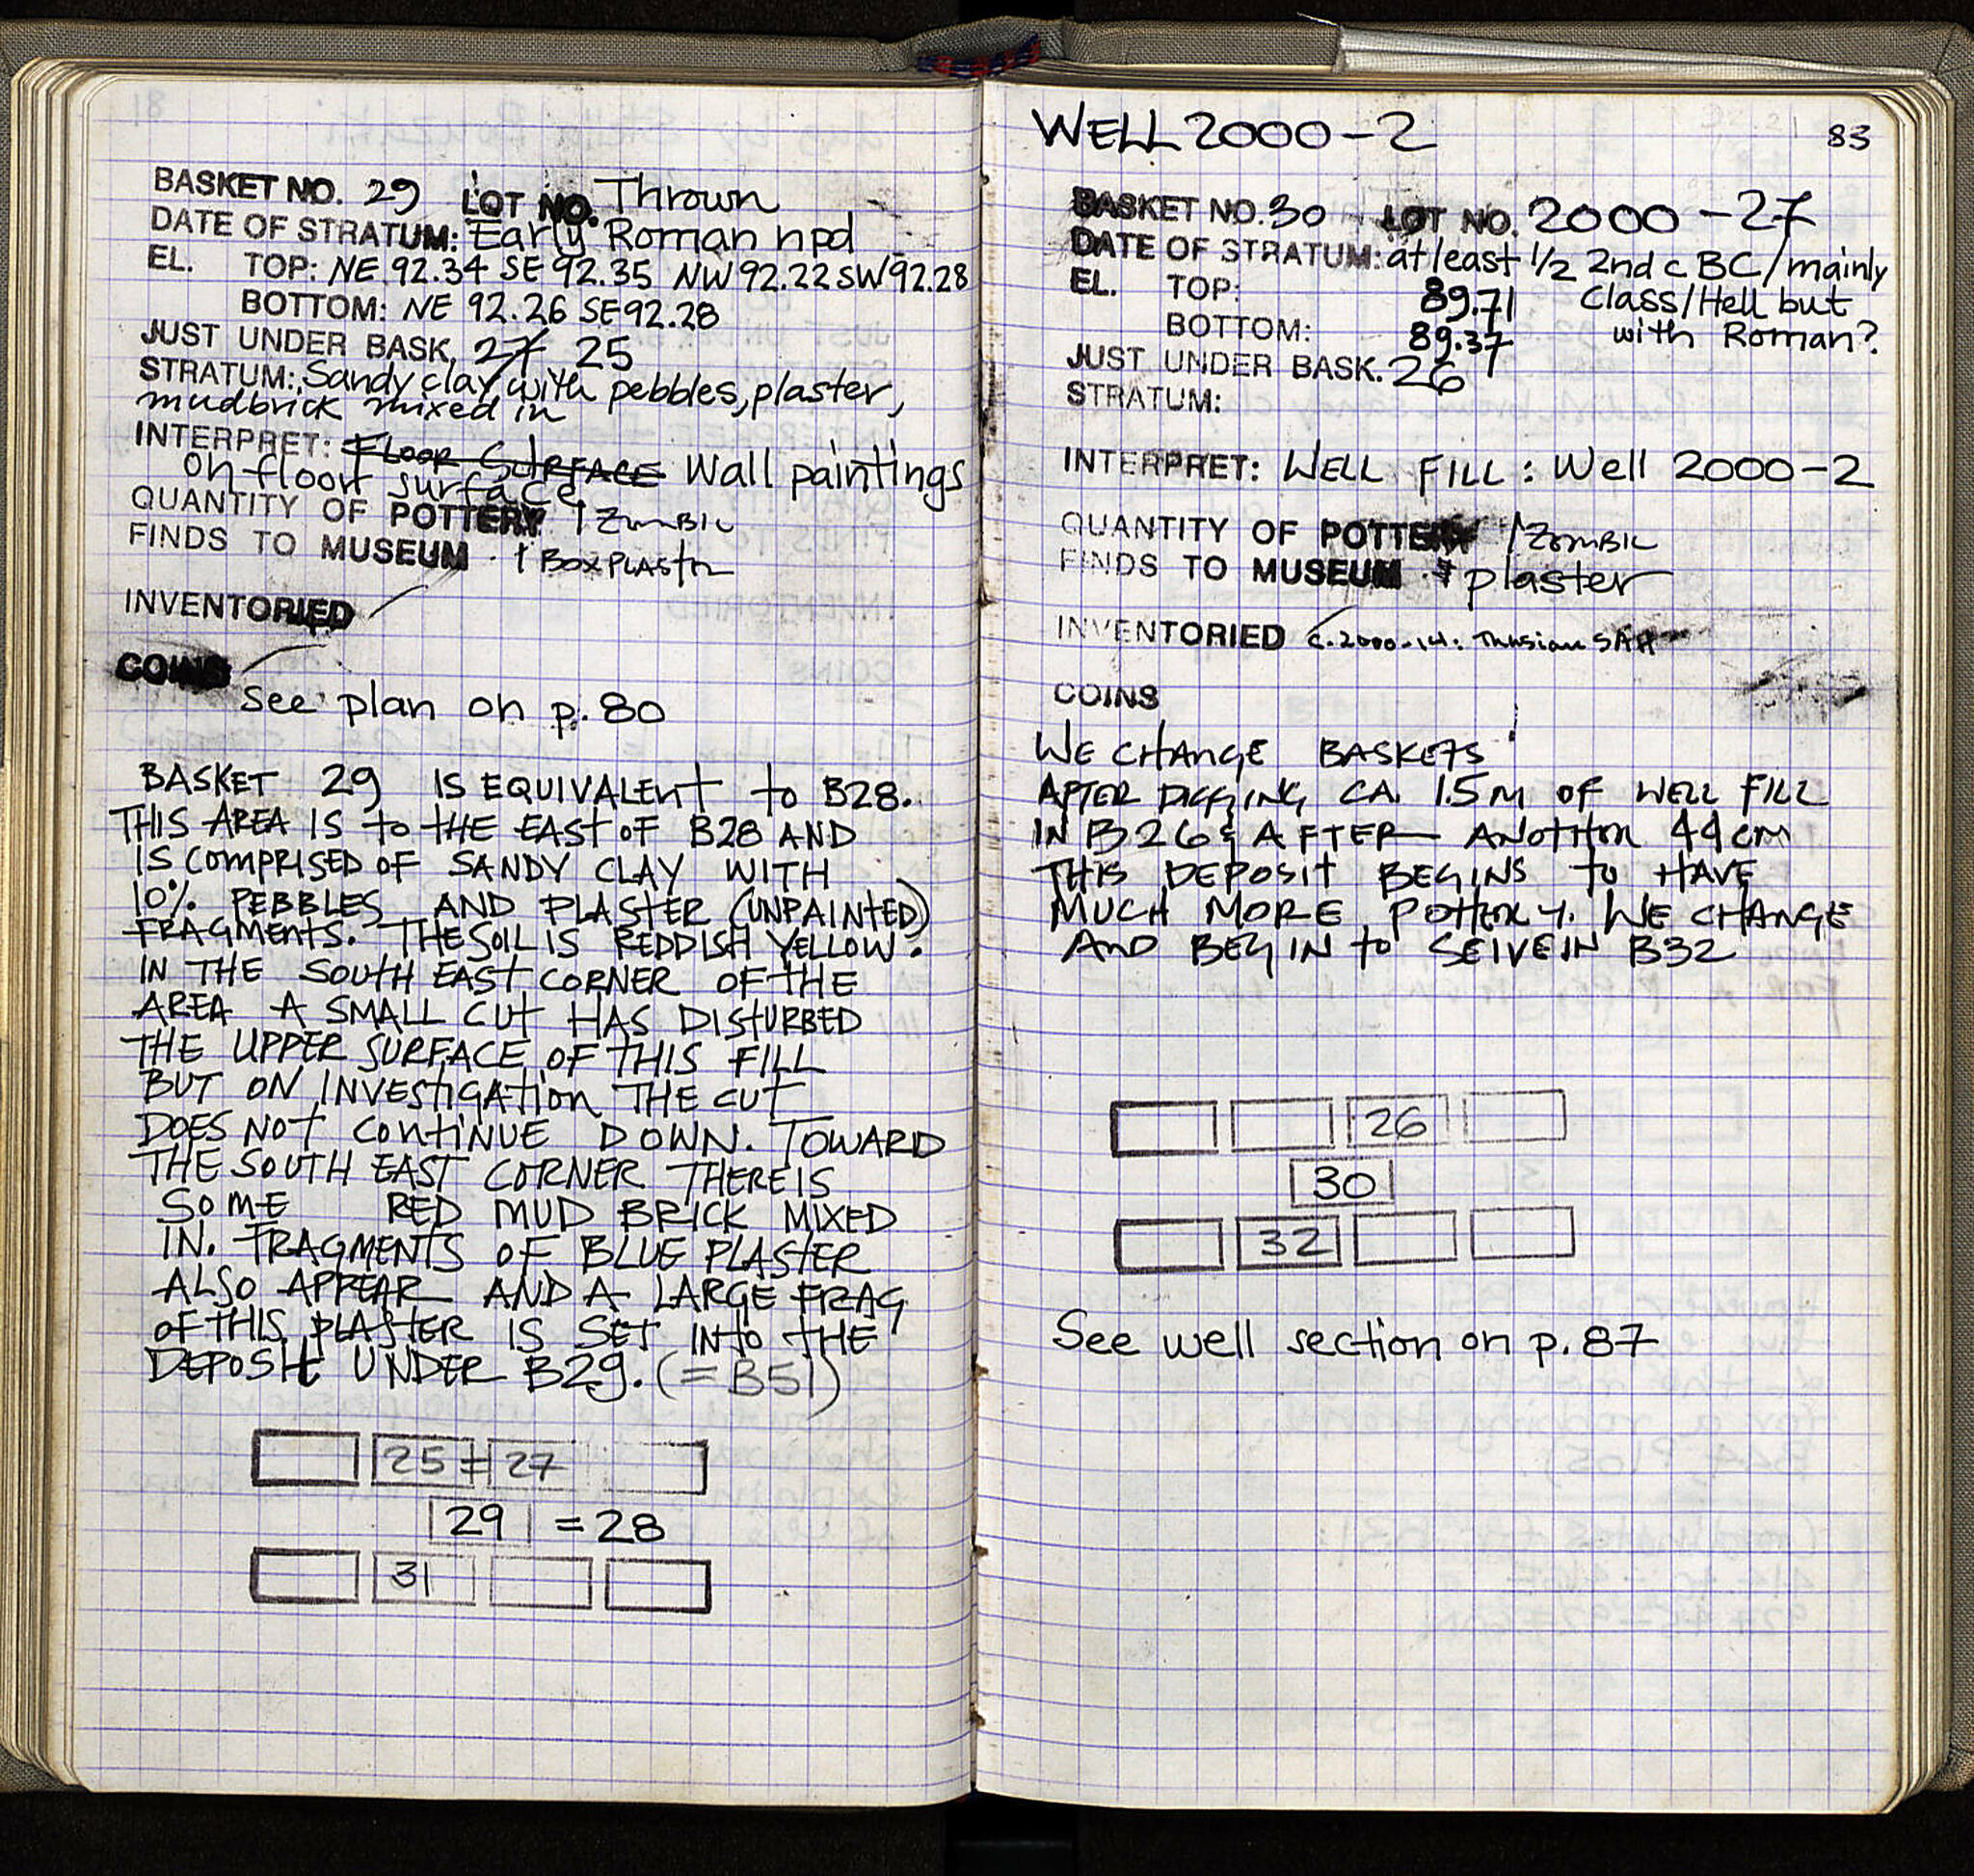 BASKET NO. 29 LOT NO. Thrown
DATE OF STRATUM: Early Roman npd
EL. TOP: NE 92.34 SE 92.35 NW 92.22 SW 92.28
BOTTOM: NE 92.26 SE 92.28
JUST UNDER BASK. 27 25
STRATUM: Sandy clay with pebbles, plaster,
mudbrick mixed in
INTERPRET: FLOOR SURFACE Wall paintings
on floor surface
QUANTITY OF POTTERY 1 ZEMBIL
FINDS TO MUSEUM 1 BOX PLASTER
INVENTORIED
COINS
see plan on p. 80
BASKET 29 IS EQUIVALENT to B28.
THIS AREA IS to the EAST OF B28 AND
IS COMPRISED OF SANDY CLAY WITH
10% PEBBLES AND PLASTER (UNPAINTED)
FRAGMENTS. THE SOIL IS REDDISH YELLOW.
IN THE SOUTH EAST CORNER OF THE
AREA A SMALL CUT HAS DISTURBED
THE UPPER SURFACE OF THIS FILL
BUT ON INVESTIGATION THE CUT
DOES NOT CONTINUE DOWN. TOWARD
THE SOUTH EAST CORNER THERE IS
SOME RED MUD BRICK MIXED
IN. FRAGMENTS OF BLUE PLASTER
ALSO APPEAR AND A LARGE FRAG
OF THIS PLASTER IS SET INTO THE
DEPOSIT UNDER B29. (= B51)
25 = 27
29 = 28
31
WELL 2000-2 83
BASKET NO. 30 LOT NO. 2000-27
DATE OF STRATUM: at least 1/2 2nd c BC/mainly
EL. TOP: 89.71 Class/Hell but
BOTTOM: 89.37 with Roman?
JUST UNDER BASK. 26
STRATUM:
INTERPRET: WELL FILL: Well 2000-2
QUANTITY OF POTTERY 1 ZEMBIL
FINDS TO MUSEUM plaster
INVENTORIED C.2000-14: Thasian SAH
COINS
WE CHANGE BASKETS
AFTER DIGGING CA. 1.5 M OF WELL FILL
IN B26 & AFTER ANOTHER 44 cm
THIS DEPOSIT BEGINS TO HAVE
MUCH MORE POTTERY. WE CHANGE
AND BEGIN to SEIVE IN B32
26
30
32
See well section on p. 87